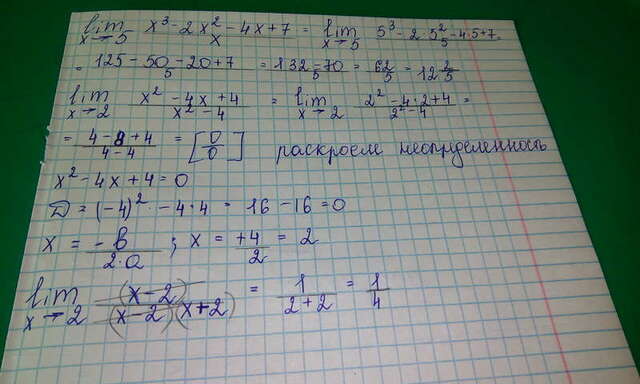 lim x→5 x³ - 2x² - 4x + 7 / x = lim x→5 5³ - 2·5² - 4·5 + 7 / 5
= 125 - 50 - 20 + 7 / 5 = 132 - 70 / 5 = 62/5 = 12 2/5
lim x→2 x² - 4x + 4 / x² - 4 = lim x→2 2² - 4·2 + 4 / 2² - 4 =
= 4 - 8 + 4 / 4 - 4 = [0/0] раскроем неопределенность
x² - 4x + 4 = 0
D = (-4)² - 4·4 = 16 - 16 = 0
x = -b / 2·a ; x = +4 / 2 = 2
lim x→2 (x-2) / (x-2)(x+2) = 1 / 2+2 = 1/4